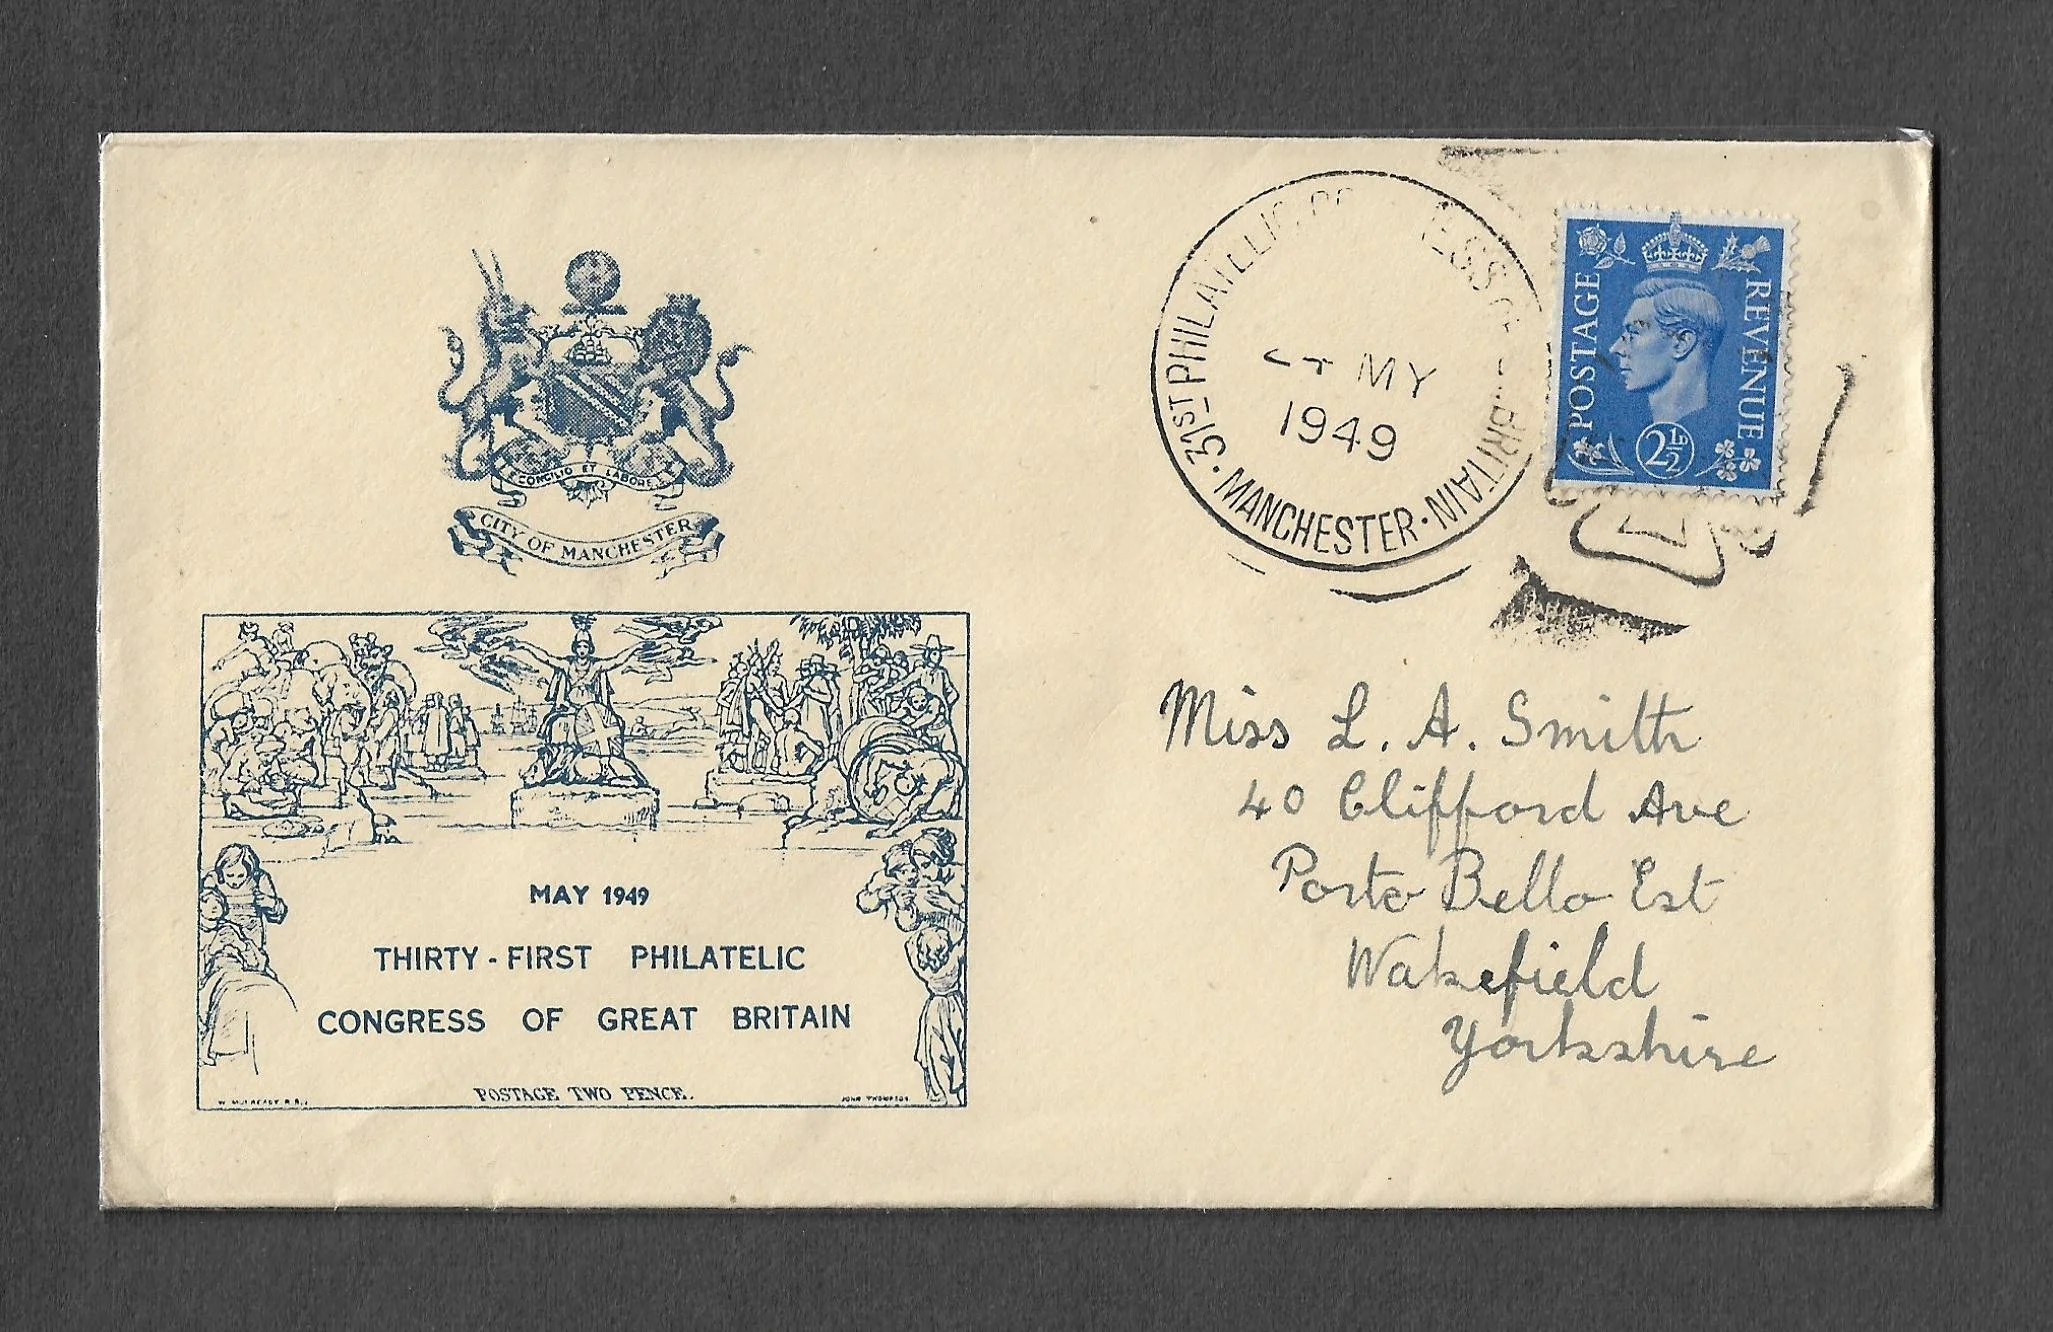 CONCILIO ET LABORE
CITY OF MANCHESTER
MAY 1949
THIRTY-FIRST PHILATELIC
CONGRESS OF GREAT BRITAIN
POSTAGE TWO PENCE.
W. MULREADY R.A.
JOHN THOMPSON
31ST PHILATELIC BRITAIN
MANCHESTER
MY
1949
POSTAGE
REVENUE
2½D
Miss L. A. Smith
40 Clifford Ave
Porto Bello Est
Wakefield
Yorkshire